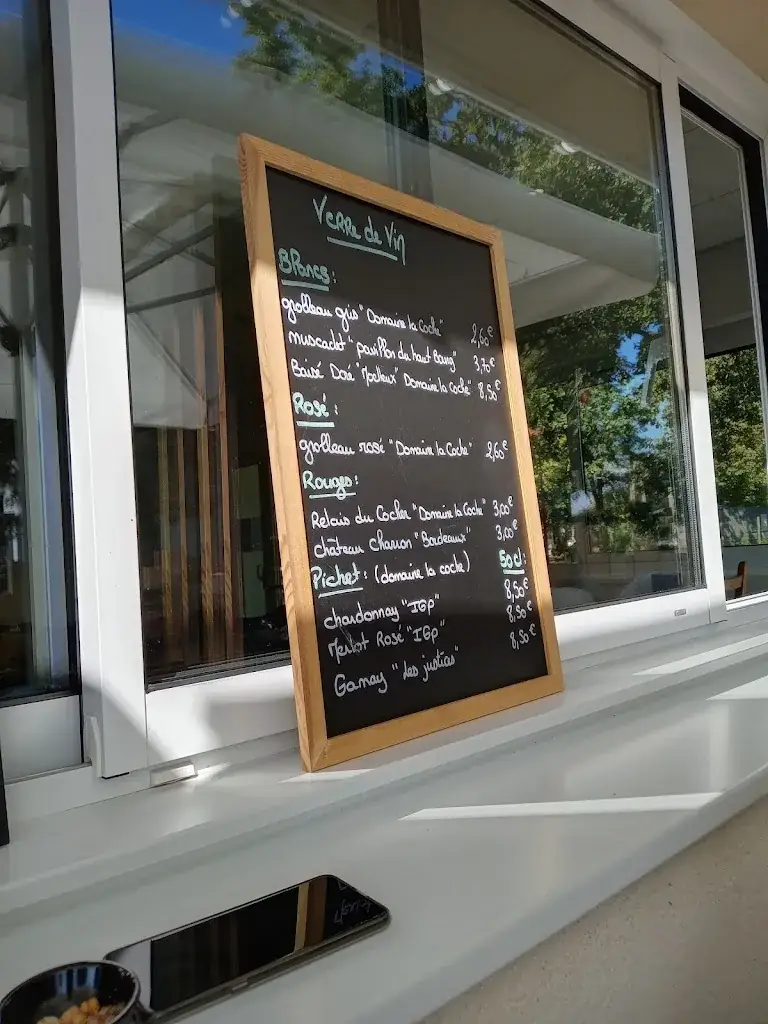 Verre de Vin
Blancs:
grolleau gris "Domaine la Coche" 2,60€
muscadet "pavillon du haut Bourg" 3,70€
Baisé Doré "Moelleux" Domaine la Coche" 8,50€
Rosé:
grolleau rosé "Domaine la Coche" 2,60€
Rouges:
Relais du Cocher "Domaine la Coche" 3,00€
château Charron "Bordeaux" 3,00€
Pichet: (domaine la coche) 50cl:
chardonnay "IGP" 8,50€
Merlot Rosé "IGP" 8,50€
Gamay "Les justices" 8,50€